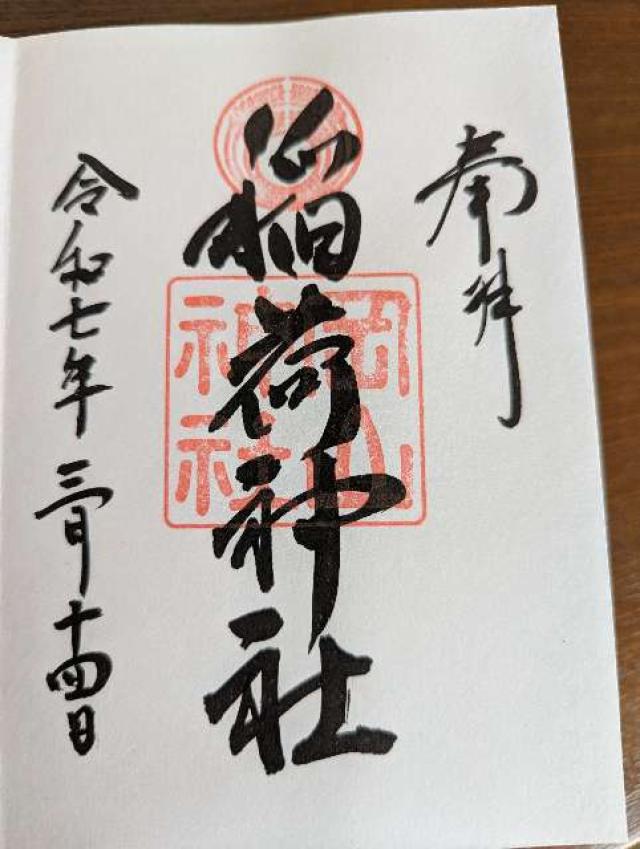 奉拝
稲荷神社
岡山
神社
令和七年三月十四日